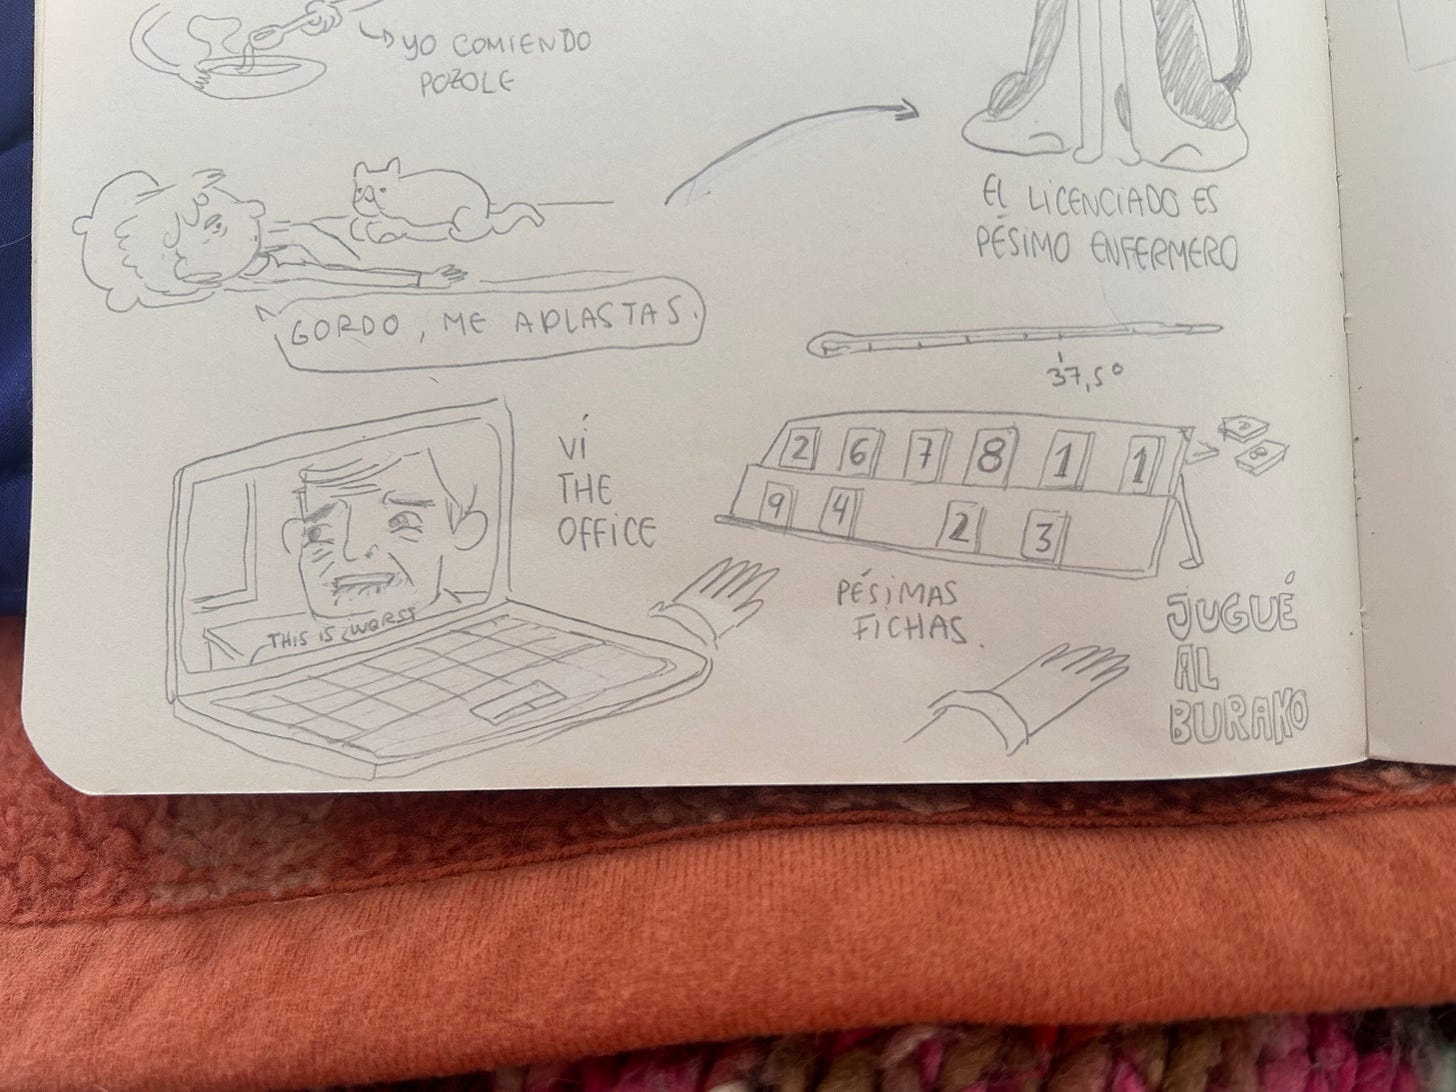 YO COMIENDO
POZOLE
EL LICENCIADO ES
PÉSIMO ENFERMERO
GORDO, ME APLASTAS.
37,5°
VÍ
THE
OFFICE
THIS IS WORST
2 6 7 8 1 1
9 4 2 3
PÉSIMAS
FICHAS.
JUGUÉ
AL
BURAKO